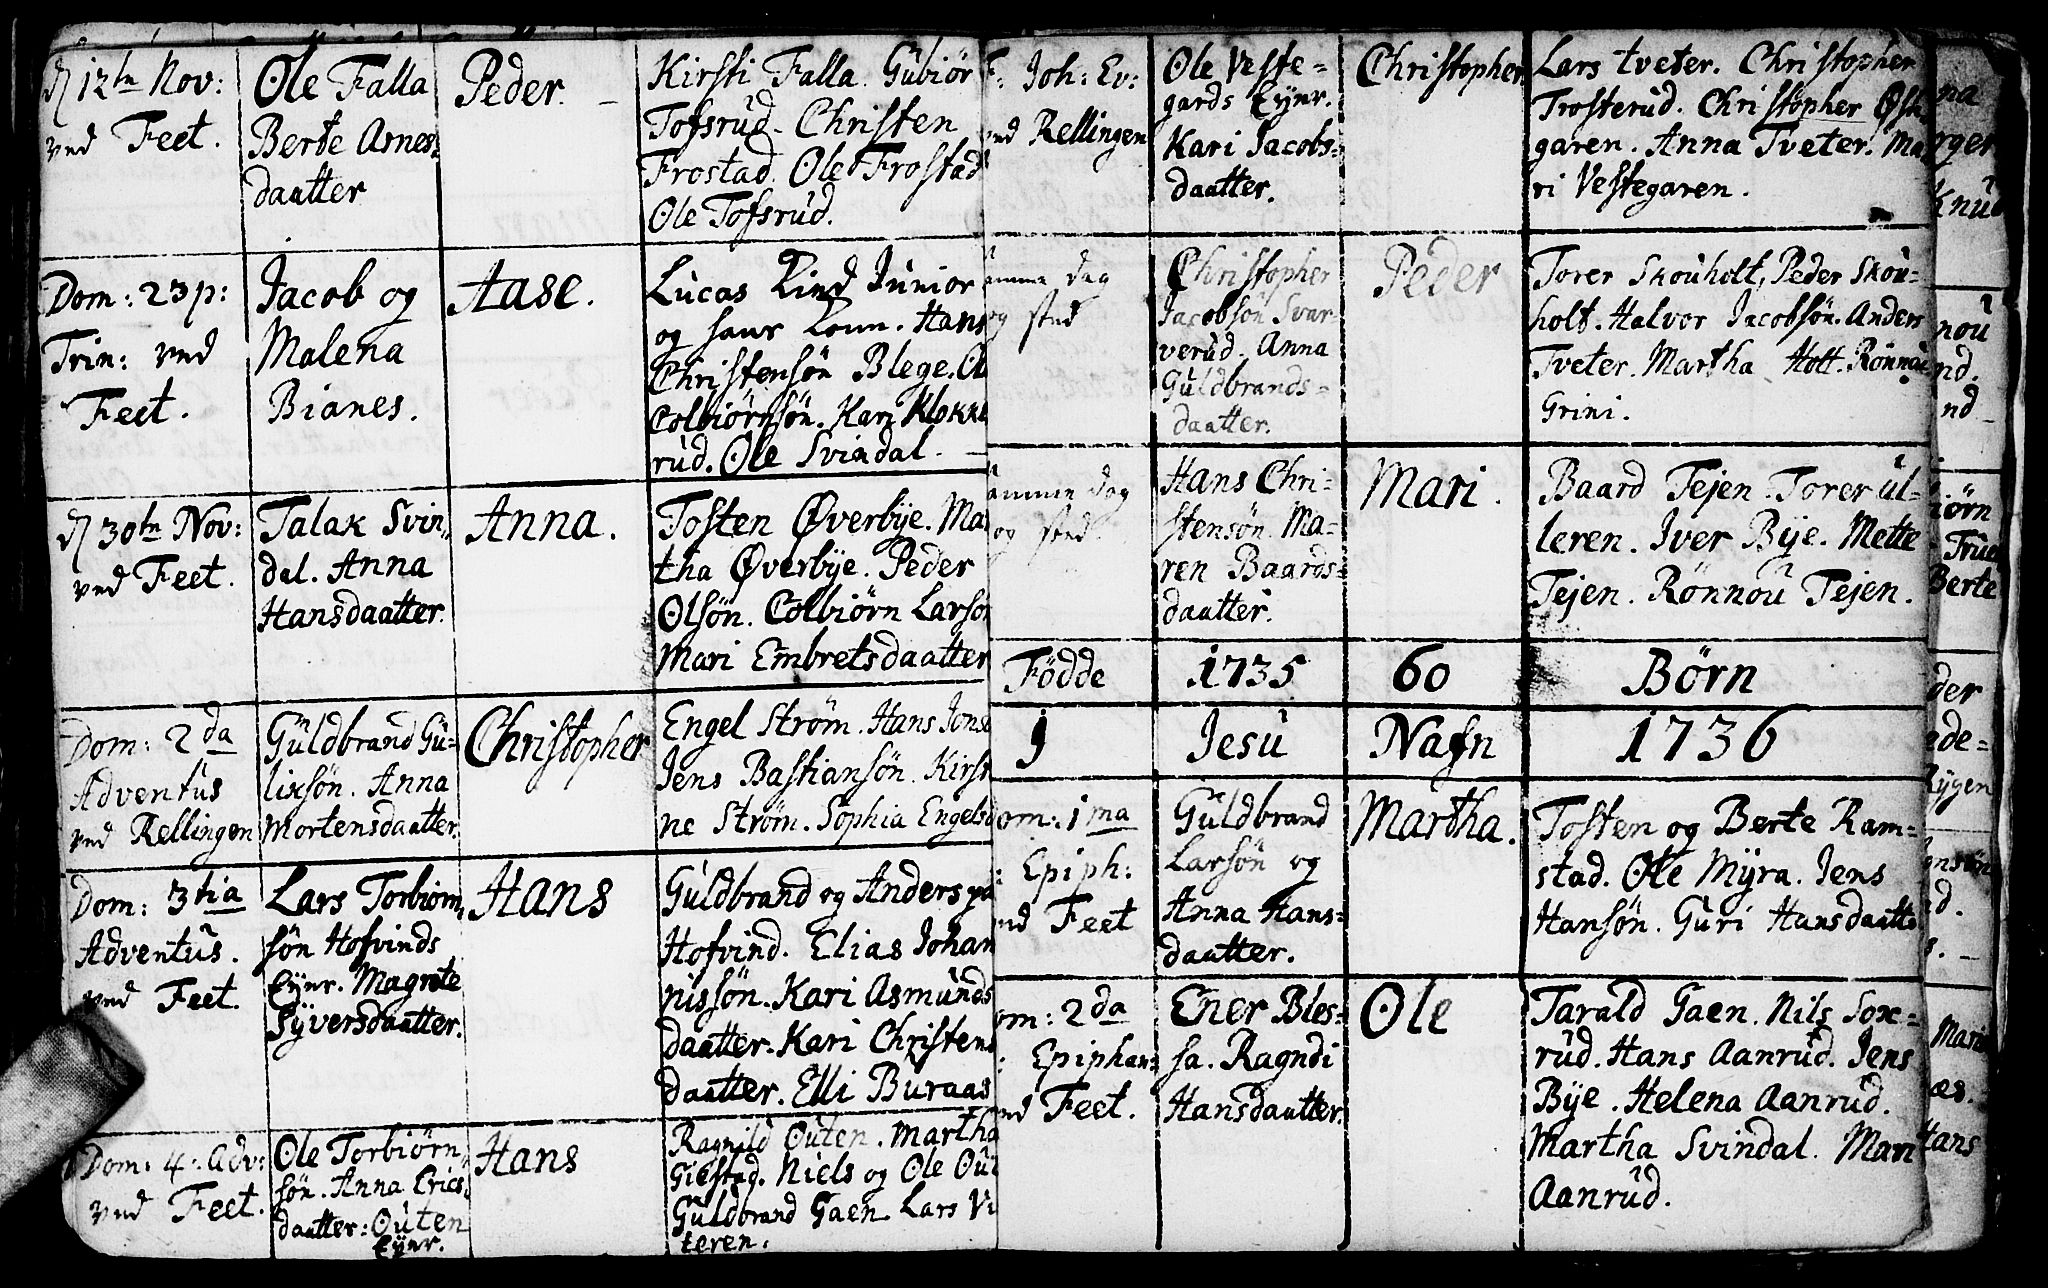 12te Nov:
ved Feet.
Ole Falla
Berte Arnes-
daatter
Peder. –
Kirsti Falla. Gubiör
Tofsrud. Christen
Frostad. Ole Frostad
Ole Tofsrud.
Dom: 23 p:
Trin: ved
Feet.
Jacob og
Malena
Bianes.
Aase.
Lucas Lind Junior
og hans Kone. Hans
Christensön Blege.
Colbiörnsön. Kari Klokke
rud. Ole Svindal. –
30te Nov:
ved Feet.
Talak Svin-
dal. Anna
Hansdaatter.
Anna.
Tosten Øverbÿe. Mar
tha Øverbÿe. Peder
Olsön. Colbiörn Larsön
Mari Embretsdaatter
Dom: 2da
Adventus
ved Rellingen
Guldbrand Gu-
lixsön. Anna
Mortensdaatter.
Christopher
Engel Ström. Hans Jons
Jens Bastiansön. Kirst
ne Ström. Sophia Engelsd
Dom: 3tia
Adventus.
ved Feet.
Lars Torbiörn-
sön Hofvinds
Eyer. Magrete
Sÿversdaatter.
Hans
Guldbrand og Anders pa
Hofvind. Elias Johan
nissön. Kari Asmunds
daatter. Kari Christens
daatter. Elli Buraas
Dom: 4: Adv:
ved Feet.
Ole Torbiörn-
sön. Anna Erics-
daatter: Outen
Eyer.
Hans
Ragnild Outen. Martha
Giestad. Niels og Ole Out
Guldbrand Gaen. Lars Vi
teren.
F: Joh: Ev:
ved Rellingen
Ole Veste-
gards Eyer.
Kari Jacobs-
daatter.
Christopher
Lars Tveter. Christopher
Trosterud. Christopher Øste
garen. Anna Tveter. Ma
ri Vestegaren.
amme dag
og sted
Christopher
Jacobsön Svar-
verud. Anna
Guldbrands-
daatter.
Peder
Torer Skouholt, Peder Skou-
holt. Halvor Jacobsön. Anders
Tveter. Martha Holt. Rönnou
Grini.
amme dag
og sted.
Hans Chri-
stensön. Ma-
ren Baards-
daatter.
Mari.
Baard Tejen. Torer Ul-
leren. Iver Bÿe. Mette
Tejen. Rönnou Tejen.
Födde 1735 60 Börn
J Jesu Nafn 1736
om: 1ma
: Epiph:
ved Feet
Guldbrand
Larsön og
Anna Hans-
daatter.
Martha.
Tosten og Berte Ram-
stad. Ole Mÿra. Jens
Hansön. Guri Hansdaatte
om: 2da
: Epiphan:
ved Feet.
Ener Bles-
sa. Ragndi
Hansdaatter.
Ole
Tarald Gaen. Nils Sox-
rud. Hans Aanrud. Jens
Bÿe. Helena Aanrud.
Martha Svindal. Mari
Aanrud.
na
rger
Knu
nou
nd.
nd
iörn
True
Berte
der
ede-
Rygen
onsön
d.
s. –
Mari
æs.
Hans